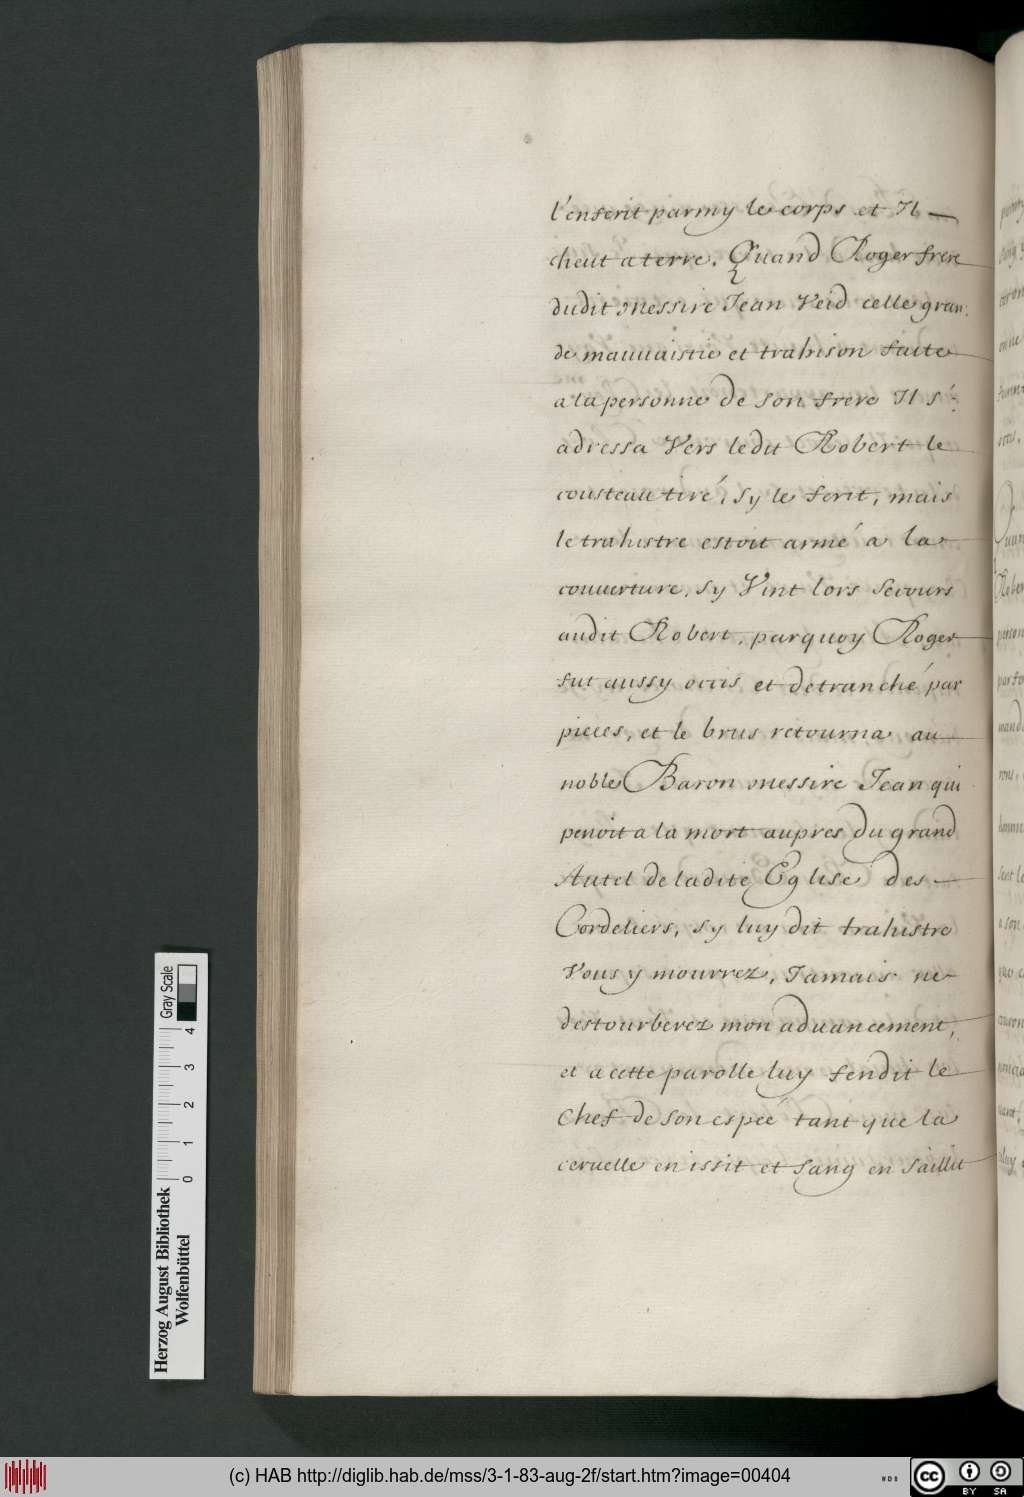 l'enferit parmy le corps et Il
cheut a terre. Quand Roger frere
dudit Messire Jean Veid celle gran
de mauuaistie et trahison faite
a la personne de son frere Il s'
adressa Vers ledit Robert le
cousteau tiré, sy le ferit, mais
le trahistre estoit armé a la
couuerture, sy Vint lors secours
audit Robert, parquoy Roger
fut aussy occis et detranché par
pieces, et le brus retourna au
noble Baron Messire Jean qui
penoit a la mort aupres du grand
Autel de ladite Eglise des
Cordeliers, sy luy dit trahistre
Vous y mourrez, Jamais ne
destourberez mon aduancement,
et a cette parolle luy fendit le
Chef de son espée tant que la
ceruelle en issit et sang en saillit
Herzog August Bibliothek
Wolfenbüttel
0 1 2 3 4
Gray Scale
(c) HAB http://diglib.hab.de/mss/3-1-83-aug-2f/start.htm?image=00404
cc BY SA